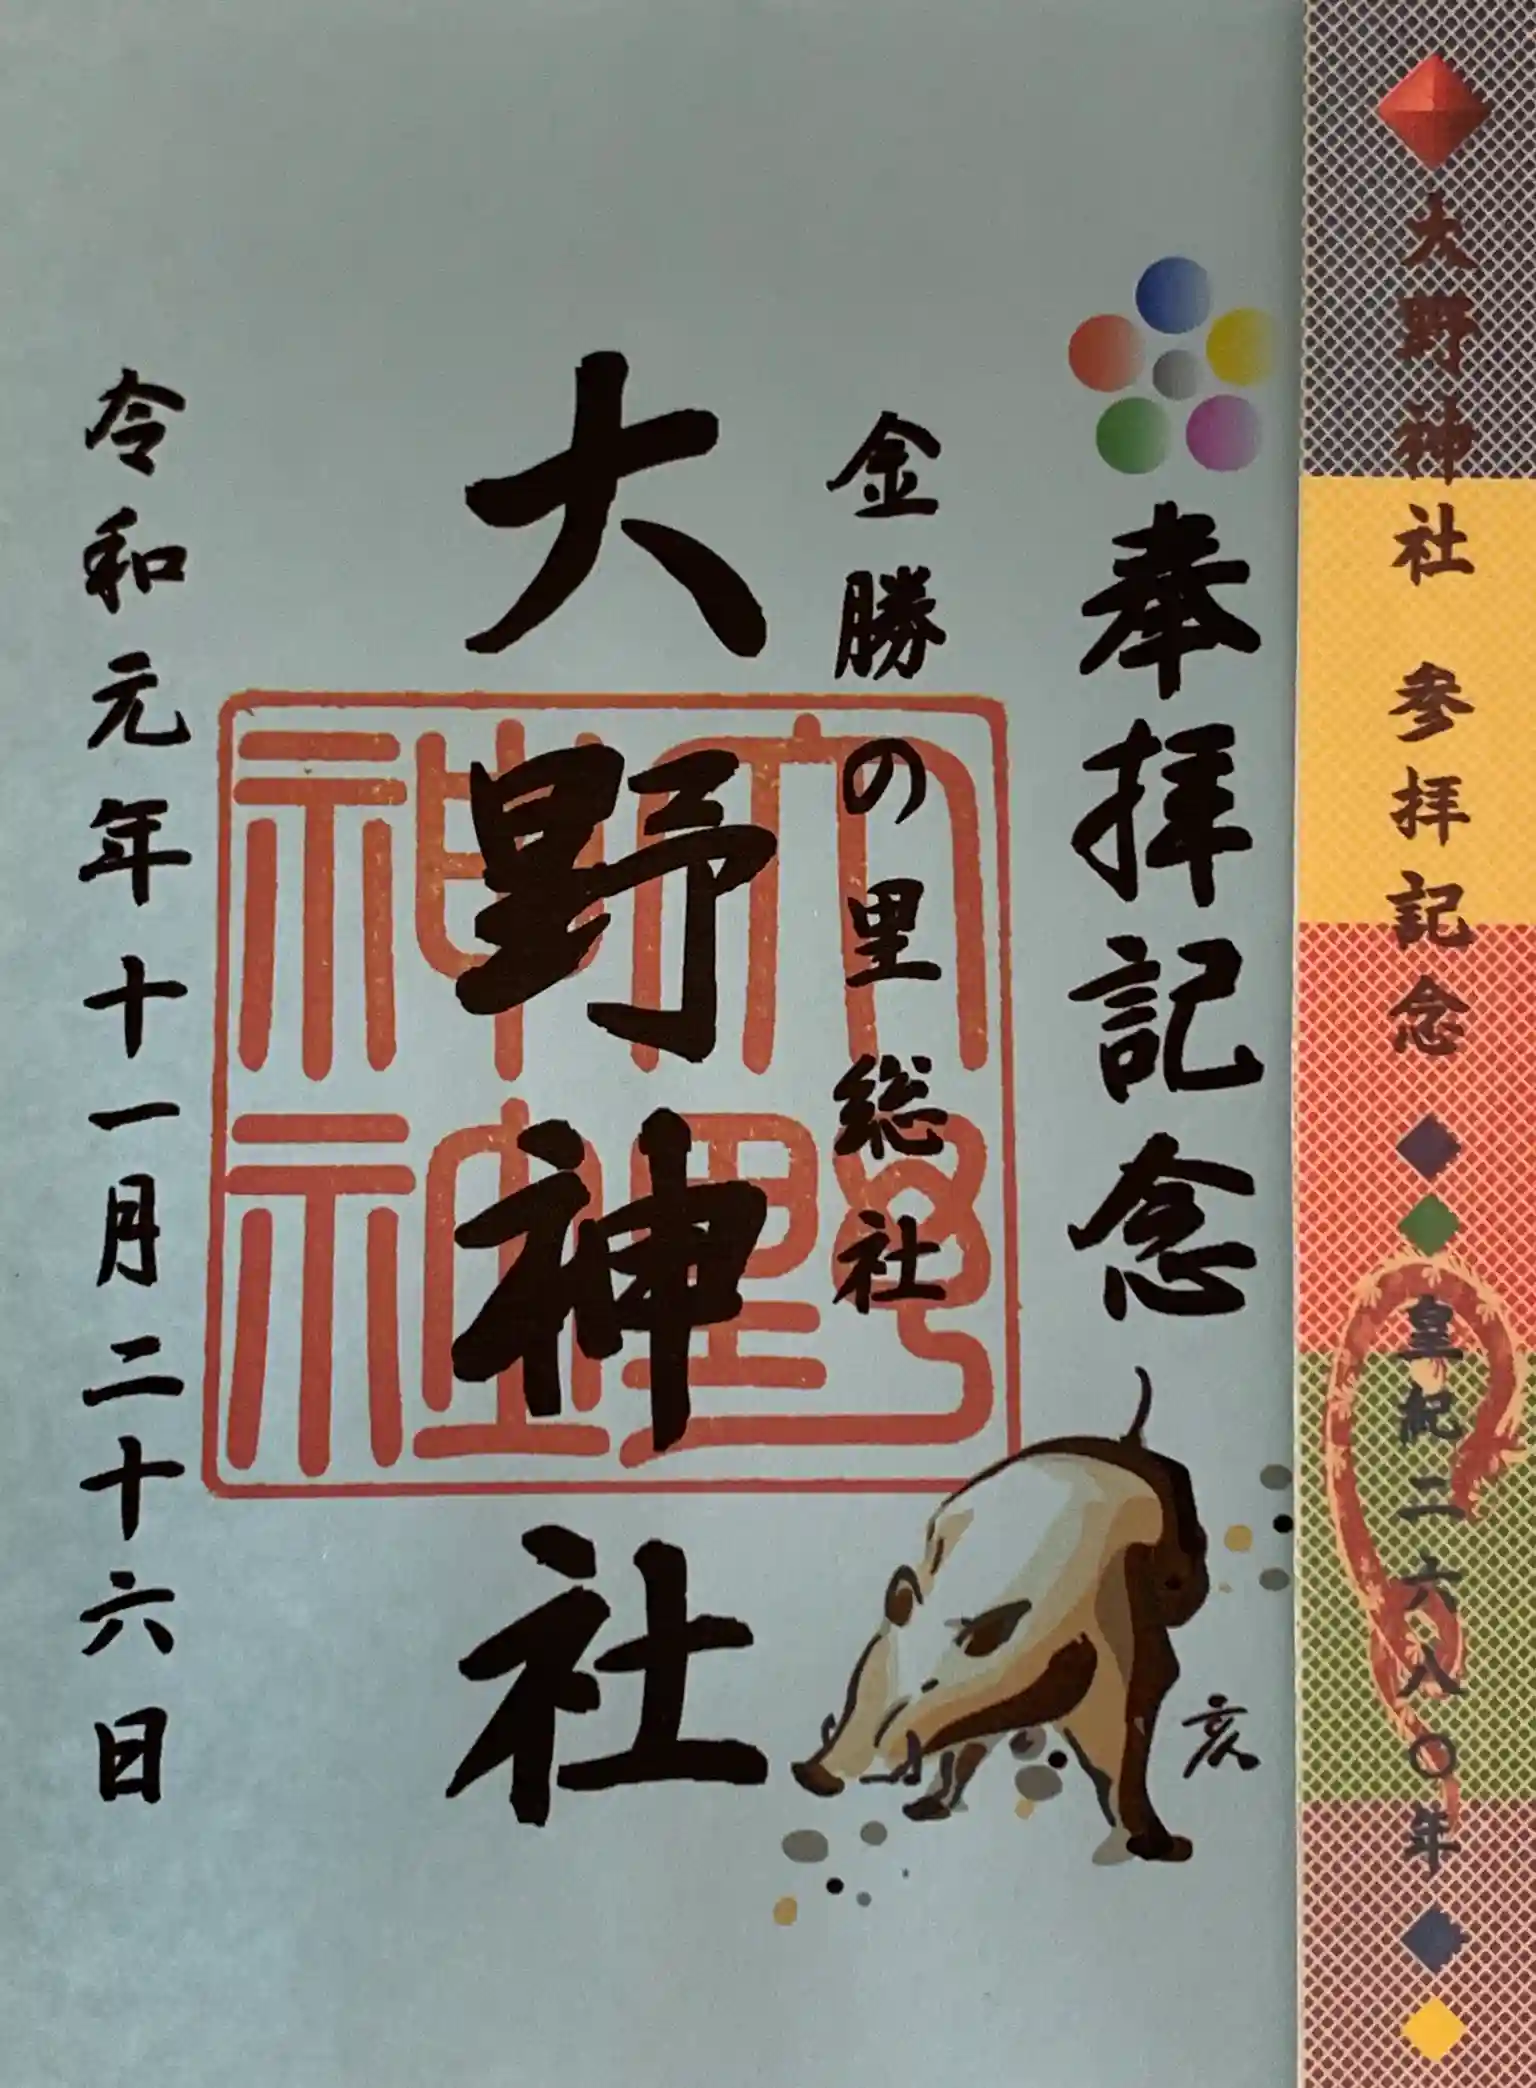 大野神社 参拝記念
皇紀二六八〇年
奉拝記念
亥
金勝の里総社
大野神社
令和元年十一月二十六日
大野神社